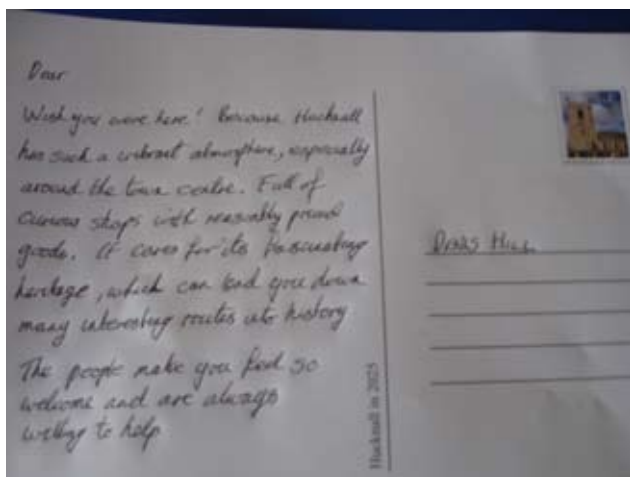 Dear
Wish you were here! Because Hucknall
has such a vibrant atmosphere, especially
around the town centre. Full of
curious shops with reasonably priced
goods. It cares for its fascinating
heritage, which can lead you down
many interesting routes into history
The people make you feel so
welcome and are always
willing to help
Hucknall in 2025
Hill